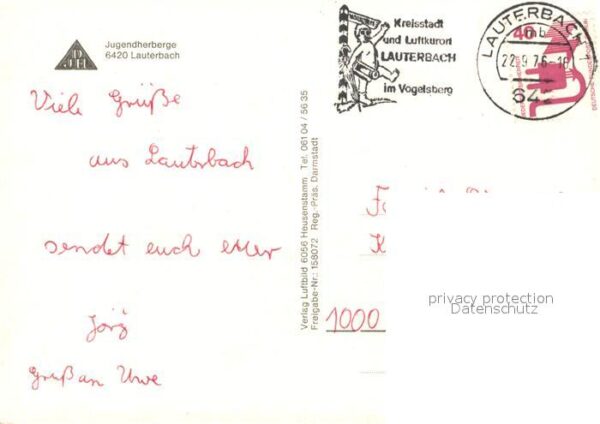 DJH
Jugendherberge
6420 Lauterbach
Viele Grüße
aus Lauterbach
sendet euch euer
Jörg
Gruß an Uwe
Verlag Luftbild 6056 Heusenstamm Tel. 061 04 / 56 35
Freigabe-Nr.: 158072 Reg.-Präs. Darmstadt
Kreisstadt
und Luftkurort
LAUTERBACH
im Vogelsberg
LAUTERBACH 1
mb
22.9.76-18
642
40
1000
privacy protection
Datenschutz